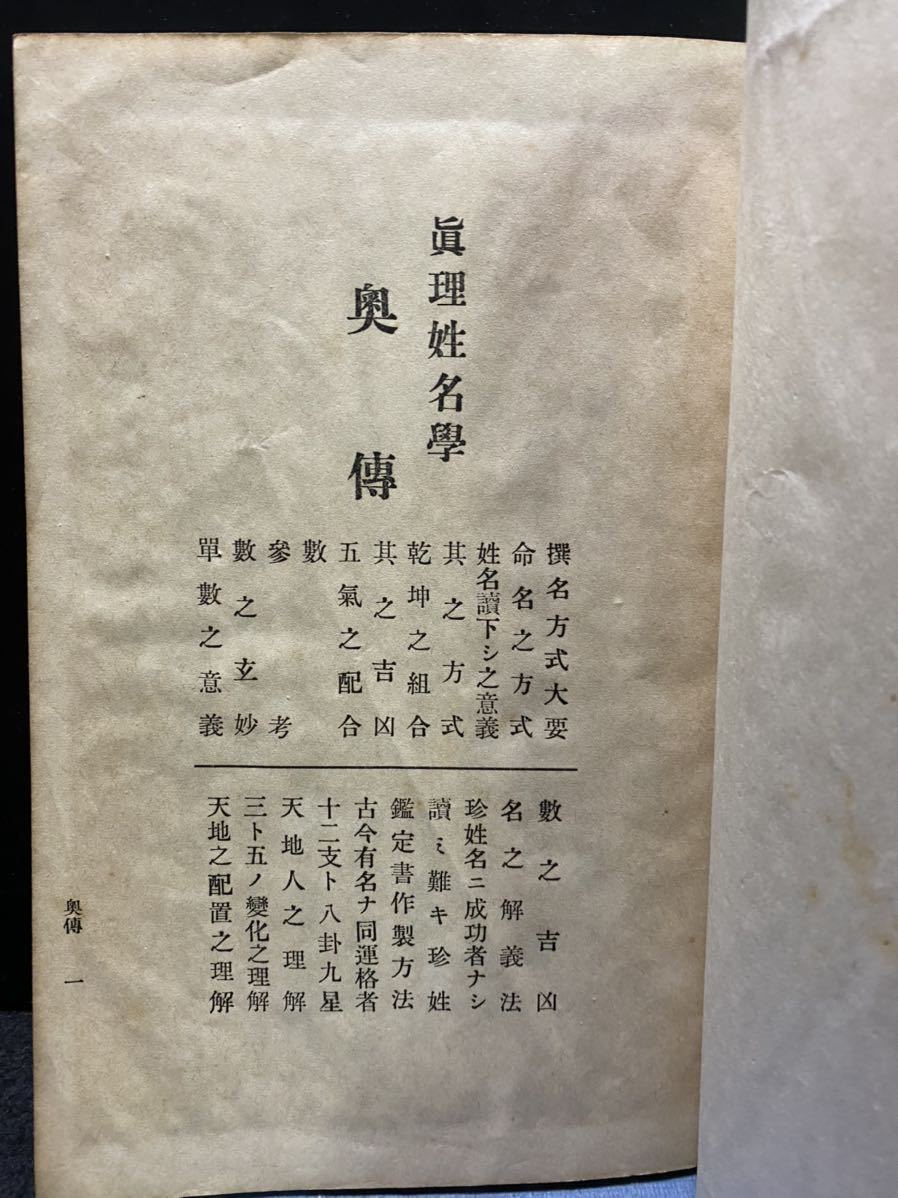 眞理姓名學
奥傳
撰名方式大要
命名之方式
姓名讀下シ之意義
其之方式
乾坤之組合
其之吉凶
五氣之配合
數
參考
數之玄妙
單數之意義
數之吉凶
名之解義法
珍姓名ニ成功者ナシ
讀ミ難キ珍姓
鑑定書作製方法
古今有名ナ同運格者
十二支ト八卦九星
天地人之理解
三ト五ノ變化之理解
天地之配置之理解
奥傳 一